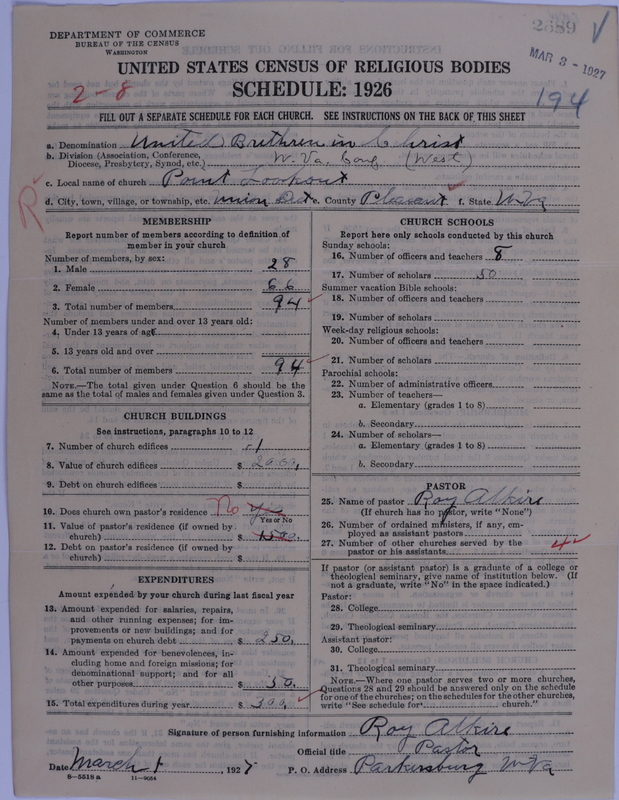 DEPARTMENT OF COMMERCE
BUREAU OF THE CENSUS
WASHINGTON
2689 V
MAR 3 - 1927
UNITED STATES CENSUS OF RELIGIOUS BODIES
SCHEDULE: 1926
2-8
194
FILL OUT A SEPARATE SCHEDULE FOR EACH CHURCH. SEE INSTRUCTIONS ON THE BACK OF THIS SHEET
a. Denomination United Brethren in Christ
b. Division (Association, Conference, Diocese, Presbytery, Synod, etc.) W. Va. Conf (West)
c. Local name of church Point Lookout
d. City, town, village, or township, etc. Union Dist e. County Pleasant f. State W Va
R
MEMBERSHIP
Report number of members according to definition of
member in your church
Number of members, by sex:
1. Male 28
2. Female 66
3. Total number of members 94
Number of members under and over 13 years old:
4. Under 13 years of age
5. 13 years old and over
6. Total number of members 94
NOTE.—The total given under Question 6 should be the
same as the total of males and females given under Question 3.
CHURCH BUILDINGS
See instructions, paragraphs 10 to 12
7. Number of church edifices 1
8. Value of church edifices $ 2000.
9. Debt on church edifices $
10. Does church own pastor's residence No Yes
Yes or No
11. Value of pastor's residence (if owned by
church) $ 1500.
12. Debt on pastor's residence (if owned by
church) $
EXPENDITURES
Amount expended by your church during last fiscal year
13. Amount expended for salaries, repairs,
and other running expenses; for im-
provements or new buildings; and for
payments on church debt $ 250.
14. Amount expended for benevolences, in-
cluding home and foreign missions; for
denominational support; and for all
other purposes $ 50.
15. Total expenditures during year $ 300.
CHURCH SCHOOLS
Report here only schools conducted by this church
Sunday schools:
16. Number of officers and teachers 8
17. Number of scholars 50
Summer vacation Bible schools:
18. Number of officers and teachers
19. Number of scholars
Week-day religious schools:
20. Number of officers and teachers
21. Number of scholars
Parochial schools:
22. Number of administrative officers
23. Number of teachers—
a. Elementary (grades 1 to 8)
b. Secondary
24. Number of scholars—
a. Elementary (grades 1 to 8)
b. Secondary
PASTOR
25. Name of pastor Roy Alkire
(If church has no pastor, write "None")
26. Number of ordained ministers, if any, em-
ployed as assistant pastors
27. Number of other churches served by the
pastor or his assistants 4
If pastor (or assistant pastor) is a graduate of a college or
theological seminary, give name of institution below. (If
not a graduate, write "No" in the space indicated.)
Pastor:
28. College
29. Theological seminary
Assistant pastor:
30. College
31. Theological seminary
NOTE.—Where one pastor serves two or more churches,
Questions 28 and 29 should be answered only on the schedule
for one of the churches; on the schedules for the other churches,
write "See schedule for church."
Signature of person furnishing information Roy Alkire
Official title Pastor
Date March 1, 1927 P. O. Address Parkersburg W Va
6—5518 a 11—9054